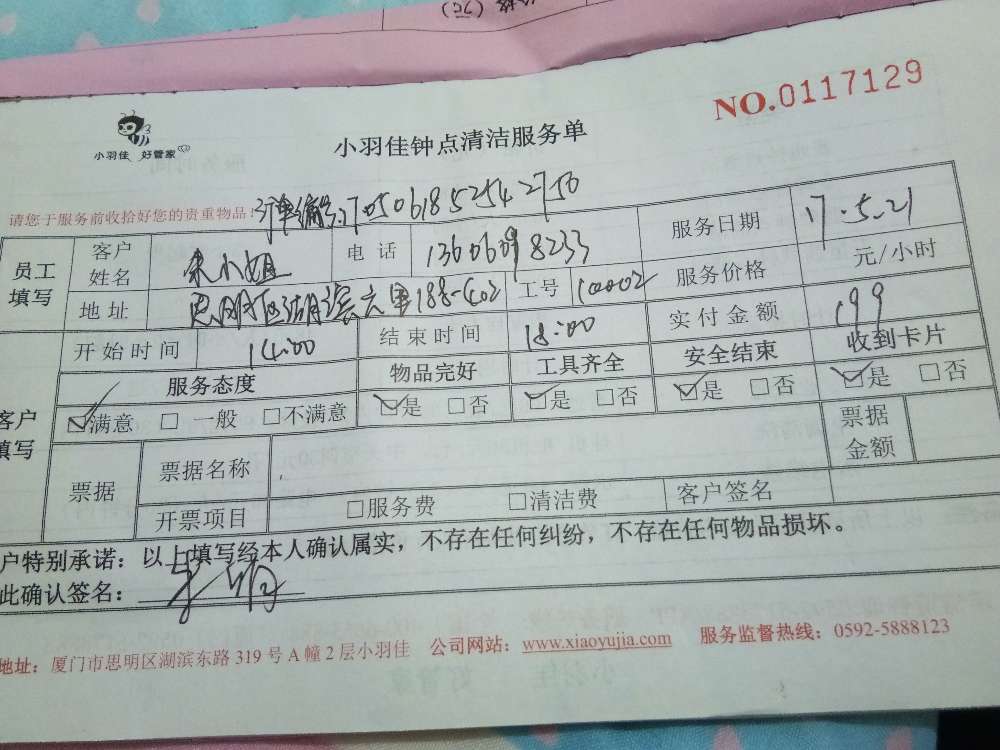 NO.0117129
小羽佳 好管家
小羽佳钟点清洁服务单
请您于服务前收拾好您的贵重物品!
订单编号:1705061852542750
员工填写 客户姓名 朱小姐 电话 13606098233 服务日期 17.5.21
地址 思明区湖滨六里188-602 工号 100002 服务价格 元/小时
开始时间 14:00 结束时间 18:00 实付金额 199
客户填写 服务态度 物品完好 工具齐全 安全结束 收到卡片
☑满意 □一般 □不满意 ☑是 □否 ☑是 □否 ☑是 □否 ☑是 □否
票据 票据名称 票据金额
开票项目 □服务费 □清洁费 客户签名
户特别承诺：以上填写经本人确认属实，不存在任何纠纷，不存在任何物品损坏。
此确认签名：
地址：厦门市思明区湖滨东路 319 号 A 幢 2 层小羽佳 公司网站：www.xiaoyujia.com 服务监督热线：0592-5888123